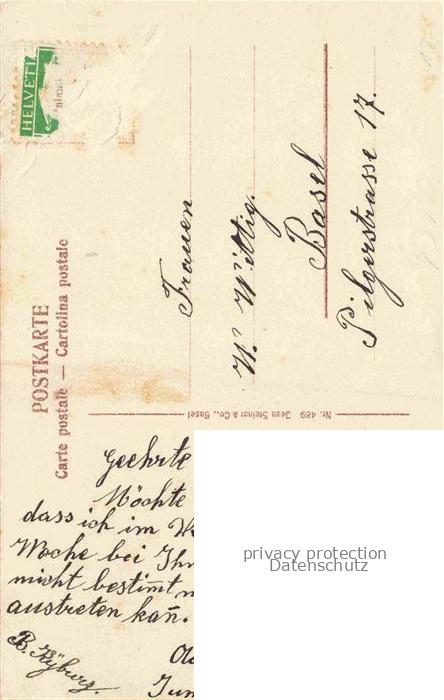 HELVETI
POSTKARTE
Carte postale — Cartolina postale
Frauen
W. Wittig.
Basel
Pilgerstrasse 17.
Nr. 489 Jean Steiner & Co., Basel
Geehrte
Möchte
dass ich im We
Woche bei Ihn
nicht bestim̄t n
austreten kan̄.
B. Kyburz.
Ol
Jun
privacy protection
Datenschutz